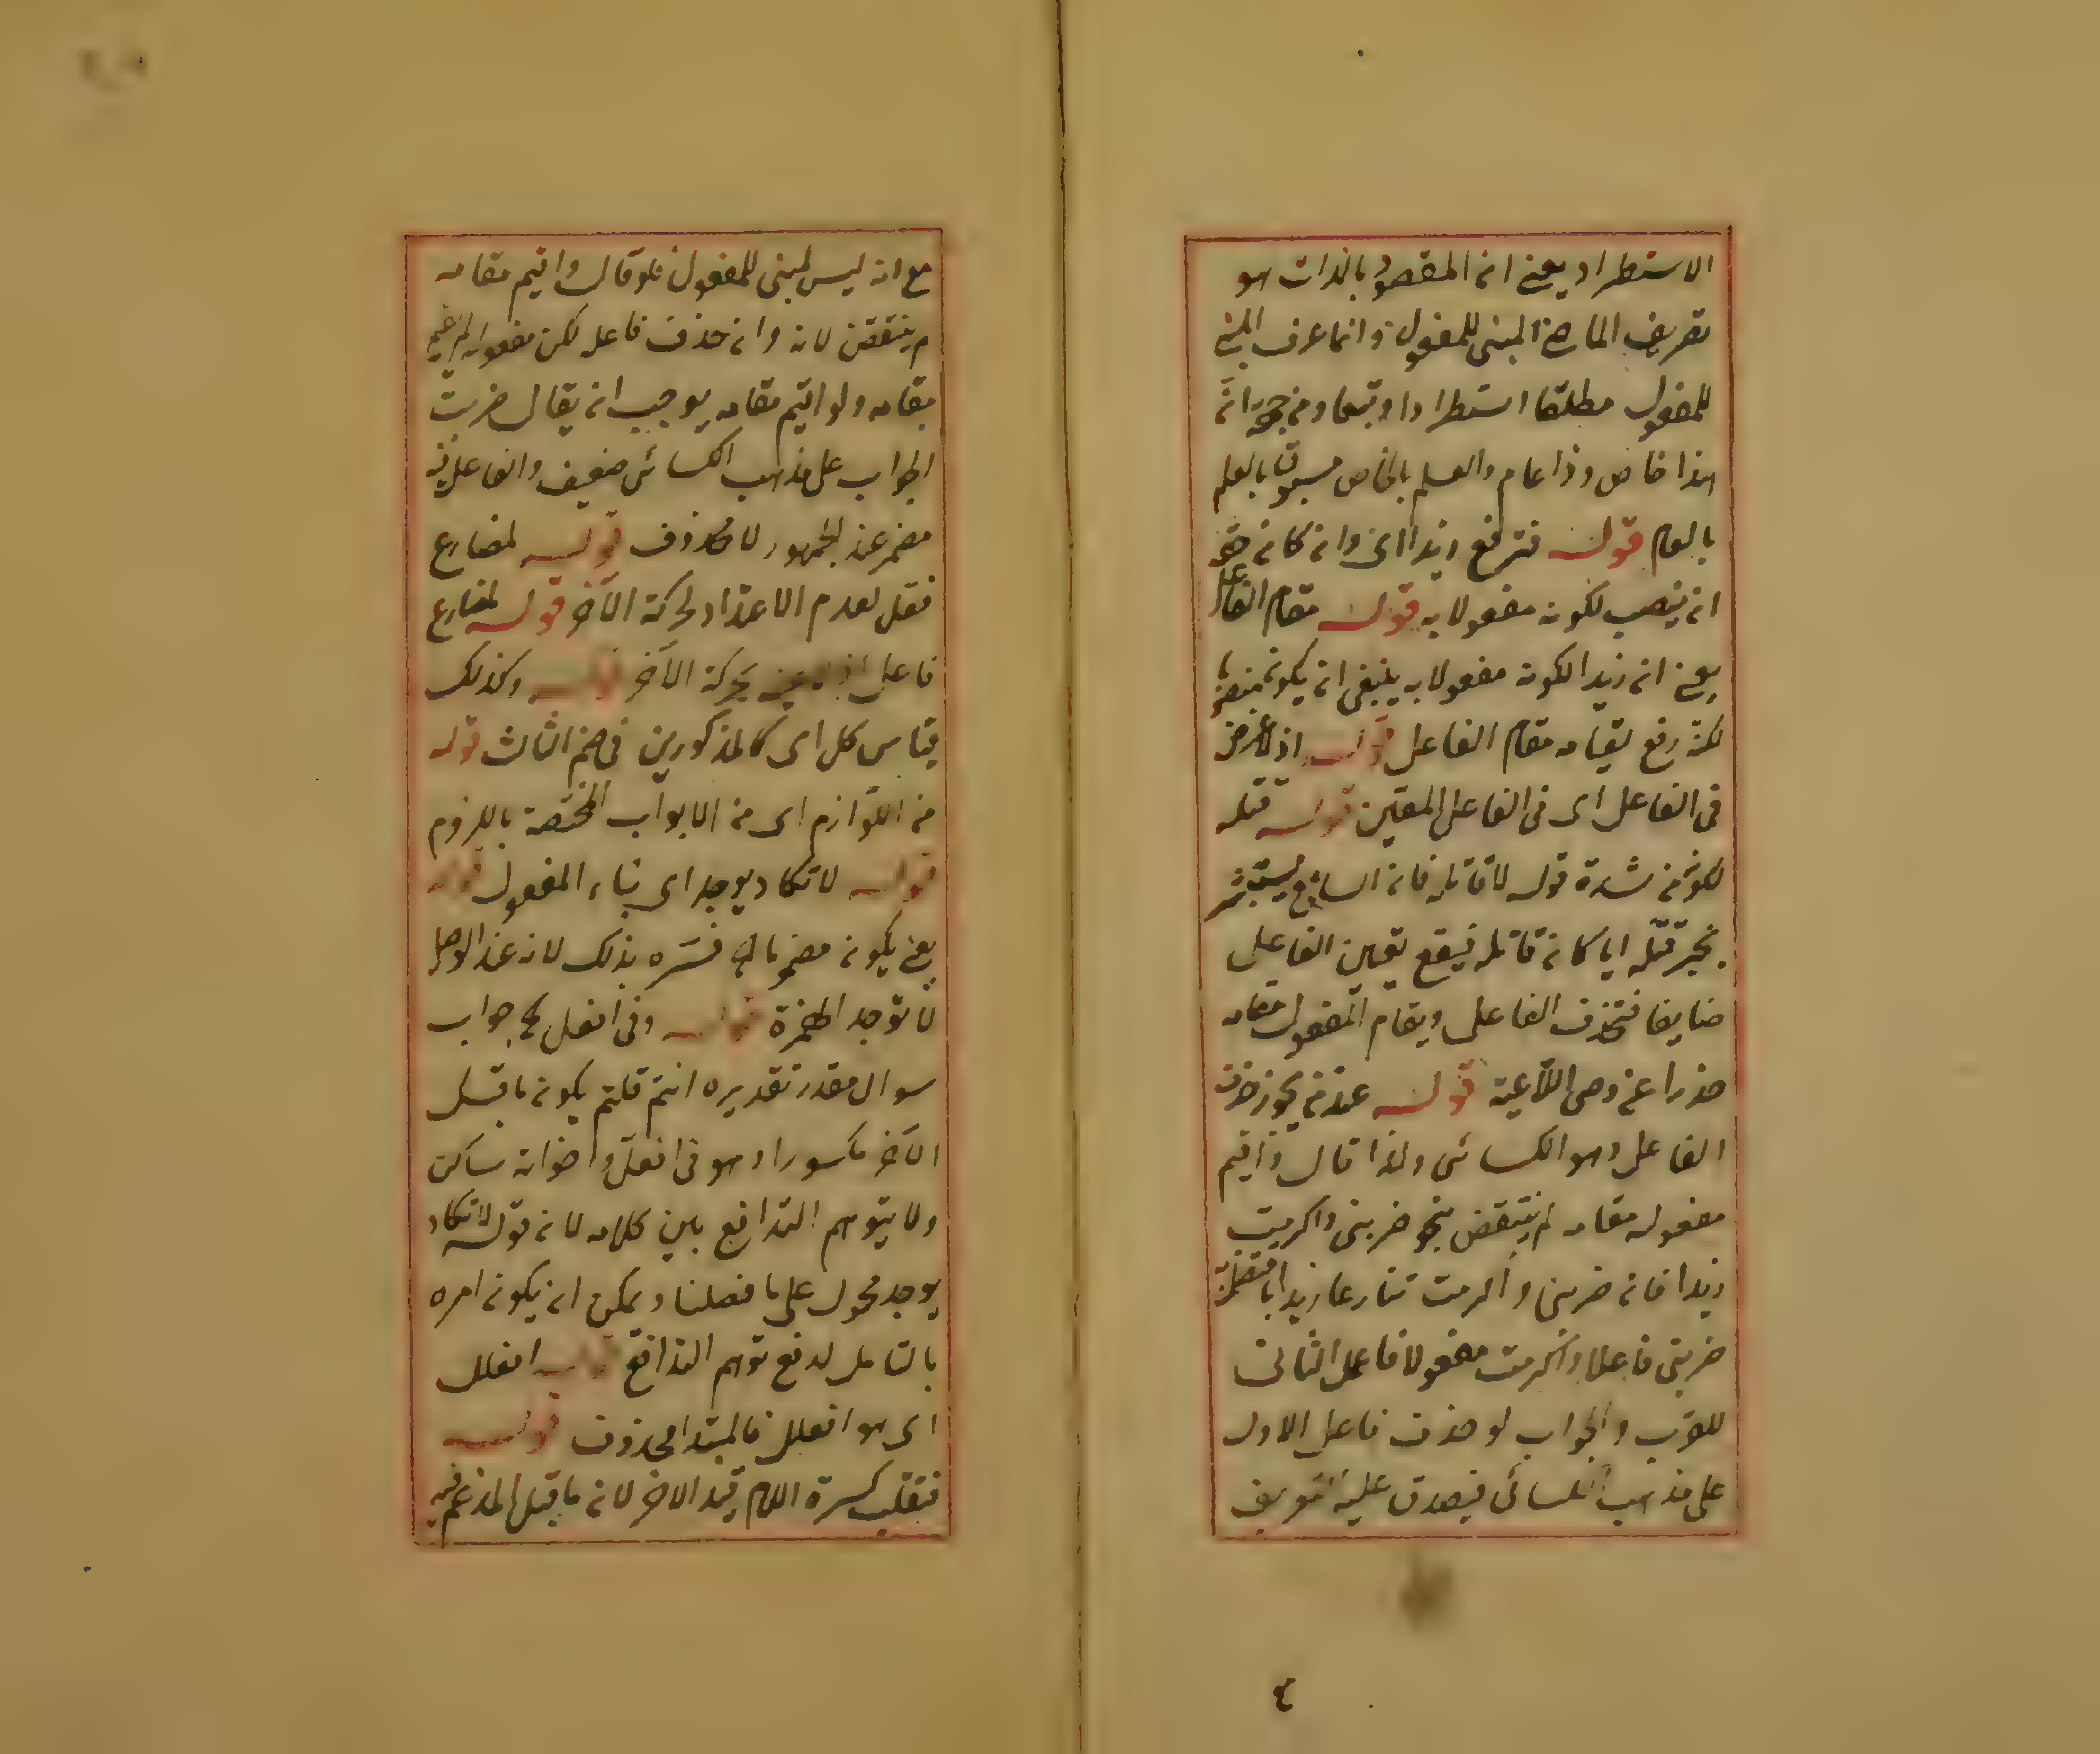 الاستطراد يعني ان المقصود بالذات هو
تعريف الماضي المبني للمفعول وانما عرف المبني
للمفعول مطلقا استطرادا وتبعا ومن جهة ان
هذا خاص وذا عام والعلم بالخاص مسبوق بالعلم
بالعام قوله فترفع زيدا اي وان كان حقه
ان ينصب لكونه مفعولا به قوله مقام الفاعل
يعني ان زيدا لكونه مفعولا به ينبغي ان يكون منصوبا
لكنه رفع لقيامه مقام الفاعل قوله اذ لا غرض
في الفاعل اي في الفاعل المعين قوله قتله
لكونه من شدة قوله لا قاتله فان السامع يستبشر
بخبر قتله ايا كان قاتله فيقع تعيين الفاعل
ضايعا فتحذف الفاعل ويقام المفعول مقامه
حذرا عن اللاغية قوله عند من يجوز حذف
الفاعل وهو الكسائي ولذا قال واقيم
مفعوله مقامه لم ينتقض بنحو ضربني واكرمت
زيدا فان ضربني واكرمت تنازعا زيدا
ضربني فاعلا واكرمت مفعولا فاعمل الثاني
للقرب والجواب لو حذف فاعل الاول
على مذهب الكسائي فيصدق عليه تعريف
٤
مع انه ليس لمبني للمفعول فلو قال واقيم مقامه
لم ينتقض لانه وان حذف فاعله لكن مفعوله لم يقم
مقامه ولو اقيم مقامه يوجب ان يقال ضربت
الجواب على مذهب الكسائي ضعيف والفاعل فيه
مضمر عند الجمهور لا محذوف قوله لمضارع
فعل لعدم الاعتداد لحركة الآخر قوله لمضارع
فاعل بحركة الآخر قوله وكذلك
قياس كل اي كالمذكورين في ضم الثالث قوله
من اللوازم اي من الابواب المختصة باللزوم
قوله لا تكاد يوجد اي بناء المفعول قوله
يعني يكون مضموما فسره بذلك لانه عند الوصل
لا توجد الهمزة قوله وفي افعل جواب
سوال مقدر تقديره انتم قلتم يكون ما قبل
الآخر مكسورا وهو في افعل واخواته ساكن
ولا يتوهم التدافع بين كلامه لان قوله لا تكاد
يوجد محمول على ما فصلنا ويمكن ان يكون امره
بالتامل لدفع توهم التدافع قوله افعلل
اي هو افعلل فالمبتدا محذوف قوله
فتقلب كسرة اللام قيد الاخر لان ما قبل المدغم فيه